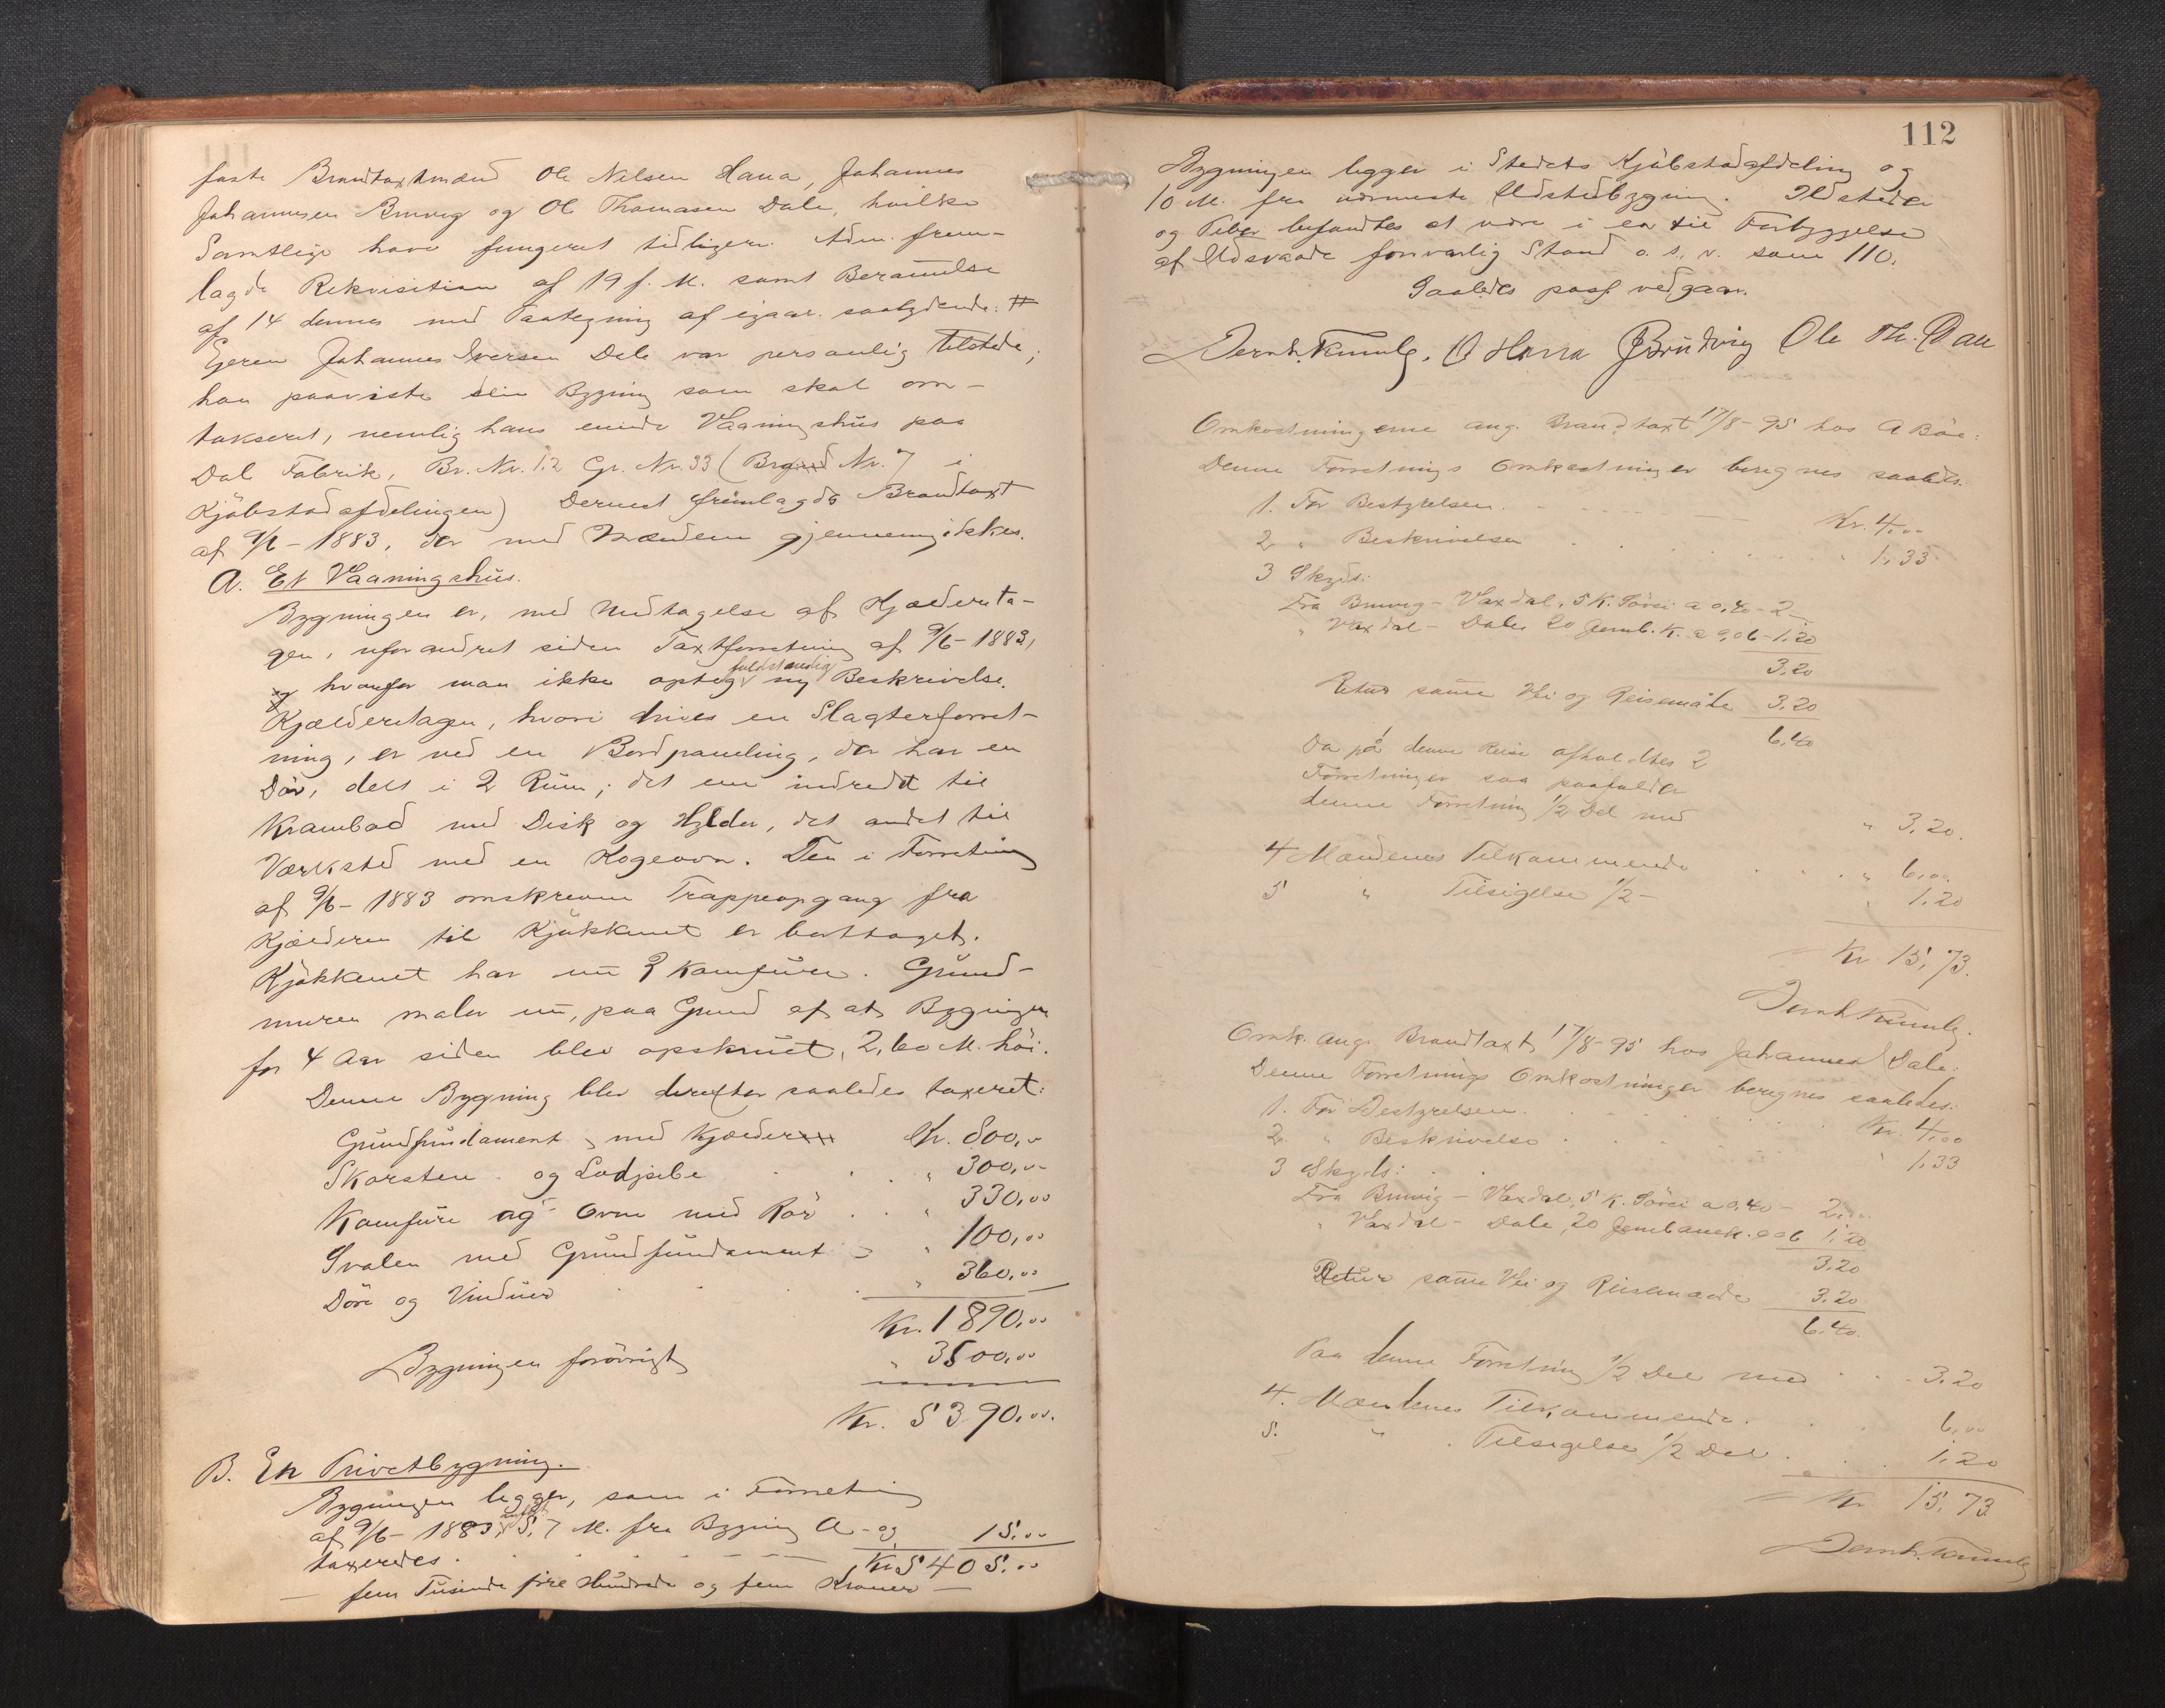 faste Brandtaxtmænd Ole Nilsen Hana, Johannes
Johannesen Bruvig og Ole Thomasen Dale, hvilke
Samtlige have fungeret tidligere. Adm. frem-
lagde Rekvisition af 19 f. M. samt Berammelse
af 14 dennes med Paategning af igaar. saalydende: #
Ejeren Johannes Iversen Dale var personlig tilstede;
han paaviste sin Bygning som skal om-
takseret, nemlig hans eiende Vaaningshus paa
Dal Fabrik, Br. Nr. 12 Gr. Nr. 33 ( Nr. 7 i
Kjøbstadsafdelingen) Dernest fremlagde Brandtaxt
af 9/6 - 1883, der med Mændene gjennemgikkes.
A. Et Vaaningshus.
Bygningen er, med Undtagelse af Kjældereta-
gen, uforandret siden Taxtforretning af 9/6 - 1883,
hvorfor man ikke optog fuldstændig ny Beskrivelse.
Kjælderetagen, hvori drives en Slagterforret-
ning, er ved en Bordpaneling, der har en
Dör, delt i 2 Rum; det ene indredt til
Krambod med Disk og Hylder, det andet til
Værksted med en Kogeovn. Den i Forretning
af 9/6 - 1883 omskrevne Trappeopgang fra
Kjælderen til Kjøkkenet er borttaget.
Kjøkkenet har nu 2 Komfurer. Grund-
muren maler nu, paa Grund af at Bygningen
for 4 Aar siden blev opskruet, 2,60 M. höi.
Denne Bygning blev derefter saaledes taxeret:
Grundfundament med Kjælder Kr. 800,00
Skorsten og Lodpibe . . " 300,00
Komfure og Ovne med Rör . . " 330,00
Svalen med Grundfundament " 100,00
Döre og Vinduer . . . " 360,00
Kr. 1890,00
Bygningen forövrigt " 3500,00
Kr. 5390,00.
B. En Privetbygning.
Bygningen ligger, som i Forretning
af 9/6 - 1883, 5,7 M. fra Bygning A - og
taxeredes . . . . 15,00
Kr 5405,00
— fem Tusinde fire Hundrede og fem Kroner —
112
Bygningen ligger i Stedets Kjöbstadsafdeling og
10 M. fra nærmeste Ildstedbygning. Ildsteder
og Piber befandtes at være i en til Forbyggelse
af Ildsvaade forsvarlig Stand o. s. v. som 110.
Saaledes passf. vedgaar.
O Hana J Bruvig Ole Th. Dale
Omkostningerne ang. Brandtaxt 17/8 - 95 hos A Böe:
Denne Forretnings Omkostninger beregnes saaledes.
1. For Bestyrelsen . . . Kr. 4,00
2 " Beskrivelsen . . . " 1,33
3 Skyds:
Fra Bruvig - Vaxdal, 5 K. Söwei a 0,40 - 2 -
" Vaxdal - Dale 20 Jernb. K. a 0,06 - 1.20
3,20
Retur samme Vei og Reisemåde 3,20
6,40
Da på denne Reise afholdtes 2
Forretninger saa paafalder
denne Forretning 1/2 Del med " 3,20.
4 Mændenes Tilkommende . . . " 6,00.
5 " Tilsigelse 1/2 - " 1,20
Kr 15,73.
Omk. ang. Brandtaxt 17/8 - 95 hos Johannes Dale:
Denne Forretnings Omkostninger beregnes saaledes:
1. For Bestyrelsen . . . Kr. 4,00
2. " Beskrivelse . . . " 1,33
3 Skyds:
Fra Bruvig - Vaxdal, 5 K. Söwei a 0,40 - 2,00
" Vaxdal - Dale, 20 Jernbanek. a 06 1,20
3,20
Retur samme Vei og Reisemaade 3,20
6,40.
Paa denne Forretning 1/2 Del med . . . 3,20
4. Mændenes Tilkommende . . . 6,00
5. " Tilsigelse 1/2 Del . . . 1,20
Kr 15,73